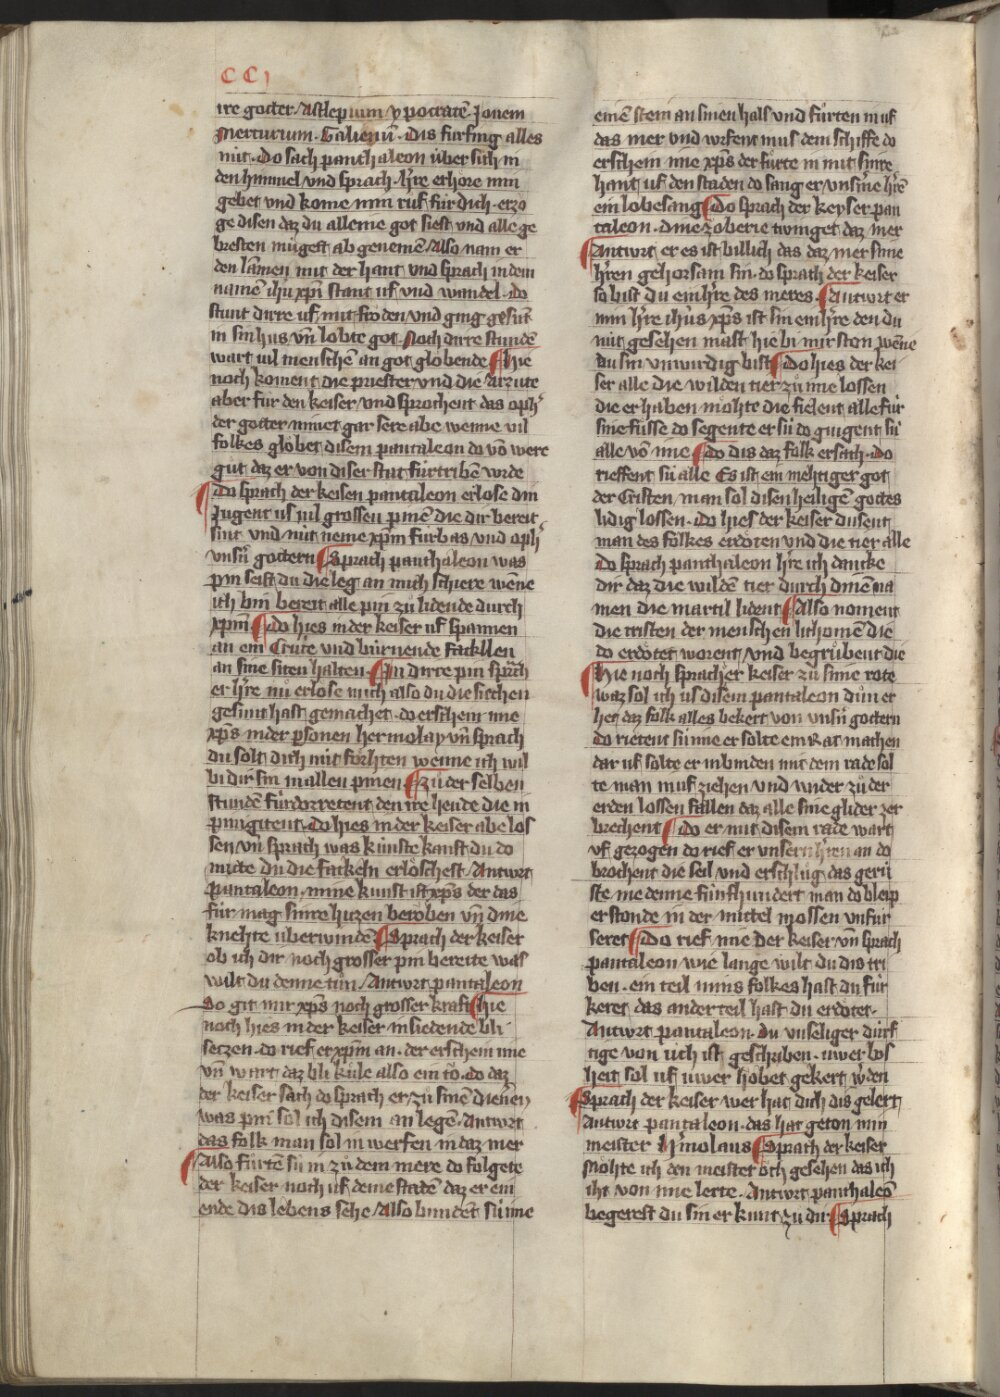 CCj
ire goͤtter / Asclepium ypocratē Jouem
Mercurium · Galienū · dis fúrfing alles
nút · Do sach panthaleon úber sich in
den himmel vnd sprach · hʼre erhoͤre min
gebet vnd kome min ruf fúr dich · erzoͤ
ge disen daz du alleine got siest vnd alle ge
bresten múgest ab genemē / Also nam er
den lāmen mit der hant vnd sprach in dem
namē ihū xpī stant uf vnd wandel · do
stunt dirre uf mit froͤden vnd ging gesūt
in sin hus vn̄ lobte got · Noch dirre stundē
wart vil menschē an got gloͤbende Hie
noch koment die priester vnd die Arzate
aber fúr den keiser / vnd sprochent das oph
der goͤtter minret gar sere abe wenne vil
folkes gloͤbet disem pantaleon do vō were
gůt daz er von diser stat fúrtribē wrde
Do sprach der keisen pantaleon erlose din
Jugent us vil grossen pinē die dir bereit
sint vnd nút neme xpm̄ fúrbas vnd oph
vnsrī goͤttern Sprach panthaleon was
pin seist du die leg an mich schiere wēne
ich bin bereit alle pin zů lidende durch
xpm̄ · do hies in der keiser uf spannen
an ein Crúce vnd búrnende fackllen
an sine siten halten · In dirre pin sprach
er hʼre nu erlose mich also du die siechen
gesunt hast gemachet · do erschein ime
xp̄s in der psonen hermolay vn̄ sprach
du solt dich nút foͤrhten wenne ich wil
bi dir sin in allen pinen · zů der selben
stundē fúrdorretent den ire hende die in
pingitent · do hies in der keiser abe los
sen vn̄ sprach was kúnste kanst du do
mitte du die fackeln erloͤschest / Antwrt
pantaleon · mine kunst ist xp̄s der das
fúr mag sinre hitzen beroͤben vn̄ dine
knehte úberwindē Sprach der keiser
ob ich dir noch grosser pin bereite was
wilt du denne tůn / Antwrt pantaleon
do git mir xp̄s noch grosser kraft Hie
noch hies in der keiser in siedende bli
setzen · do rief er xpm̄ an · der erschein ime
vn̄ wart daz bli kůle also ein to · do daz
der keiser sach do sprach er / zů sinē dienʼen
was pin sol ich disem an legē · Antwrt
das folk man sol in werfen in daz mer
Also fůrtē sú in zů dem mere do folgete
der keiser noch uf deme stadē daz er ein
ende dis lebens sehe / Also bundēt sú ime
einē stein an sinen hals vnd fůrten in uf
das mer vnd wrfent in us dem schiffe do
erschein ime xp̄s der fůrte in mit sinre
hant uf den staden do sang er vnsʼme hʼrē
ein lobesang Do sprach der keyser pan
taleon · dine zoͤberie twinget daz mer
Antwrt er es ist billich das daz mer sime
hʼren gehorsam sin · do sprach der keiser
so bist du ein hʼre des meres · Antwrt er
min hʼre ihūs xp̄s ist sin ein hʼre den du
nút gesehen maht hie bi mir ston wēne
du sin vnwirdig bist Do hies der kei
ser alle die wilden tier zů ime lossen
die er haben moͤhte die fielent alle fúr
sine fússe do segente er sú do gingent sú
alle vō ime Do dis daz folk ersach · do
rieffent sú alle Es ist ein mehtiger got
der Cristen · man sol disen heiligē gottes
lidig lossen · do hies der keiser dusent
man des folkes ertoͤten vnd die tier alle
do sprach panthaleon hʼre ich dancke
dir daz die wildē tier durch dinē na
men die martil lident Also noment
die cristen der menschen lichomē die
do ertoͤtet worent / vnd begrůbent die
Hie noch sprach der keiser zů sime rote
waz sol ich us disem pantaleon důn er
het daz folk alles bekert von vnsrī goͤttern
do rietent sú ime er solte ein Rat machen
dar uf solte er in binden mit dem rade sol
te man in uf ziehen vnd wider zů der
erden lossen fallen daz alle sine glider zer
brechent Do er mit disem rade wart
vf gezogen do rief er vnsern hʼren an do
brochent die seil vnd erschlůg das gerú
ste me denne fúnfhundert man do bleip
er stonde in der mittel mossen vnfúr
seret Do rief ime der keiser vn̄ sprach
pantaleon wie lange wilt du dis tri
ben · ein teil mins folkes hast du fúr
keret das ander teil hast du ertoͤtet ·
Antwrt pantaleon · Du vnseliger dúrf
tige von úch ist geschriben · uwer bos
heit sol uf uwer hoͤbet gekert wʼden
Sprach der keiser wer hat dich dis gelert
Antwrt pantaleon · das hat geton min
meister Hʼmolaus Sprach der keiser
Moͤhte ich den meister oͤch gesehen das ich
iht von ime lerte · Antwrt panthaleō
begerest du sin er kunt zu dir Sprach